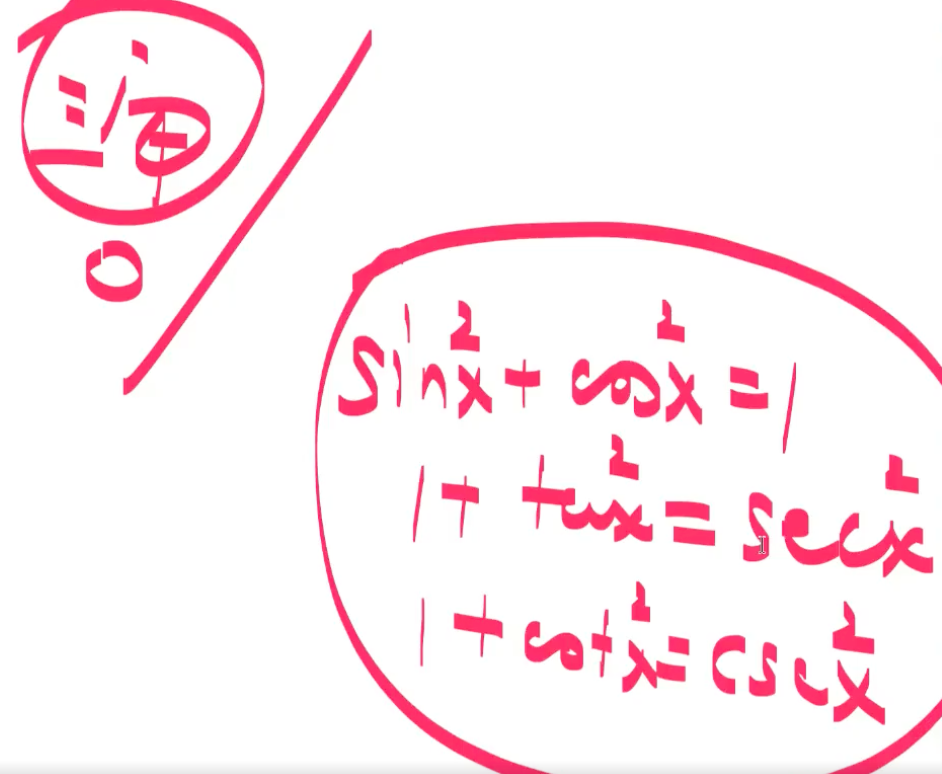 sin²x + cos²x = 1
1 + tan²x = sec²x
1 + cot²x = csc²x